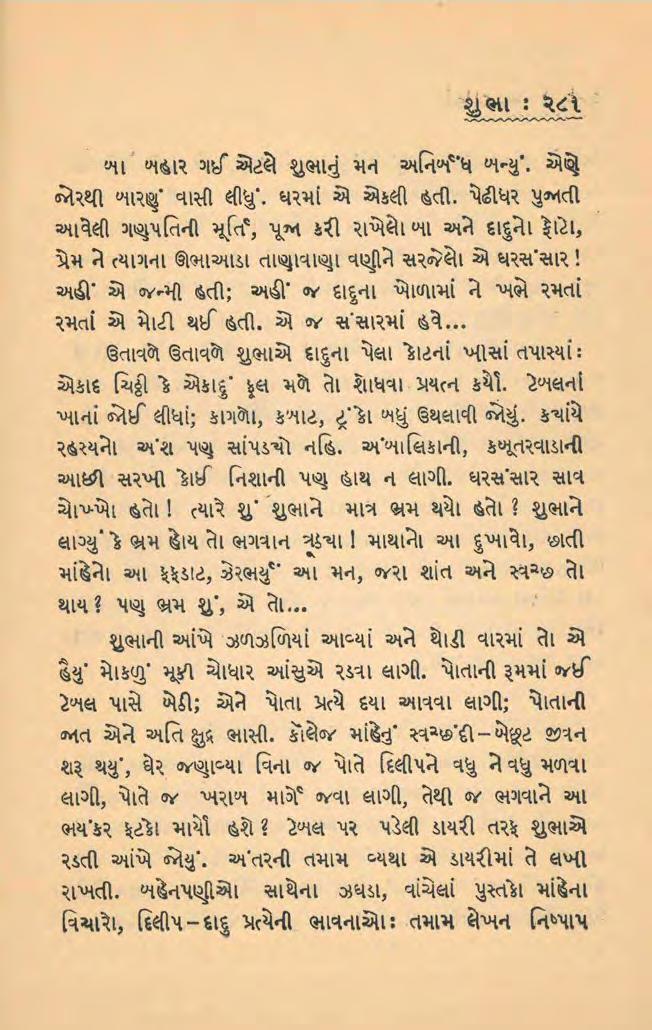 શુભા : ૨૮૧
બા બહાર ગઈ એટલે શુભાનું મન અનિર્બંધ બન્યું. એણે
જોરથી બારણું વાસી લીધું. ઘરમાં એ એકલી હતી. પેઢીધર પુજાતી
આવેલી ગણપતિની મૂર્તિ, પૂજા કરી રાખેલો બા અને દાદુનો ફોટો,
પ્રેમ ને ત્યાગના ઊભાઆડા તાણાવાણા વણીને સરજેલો એ ઘરસંસાર!
અહીં એ જન્મી હતી; અહીં જ દાદુના ખોળામાં ને ખભે રમતાં
રમતાં એ મોટી થઈ હતી. એ જ સંસારમાં હવે...
ઉતાવળે ઉતાવળે શુભાએ દાદુના પેલા કોટનાં ખીસાં તપાસ્યાં:
એકાદ ચિઠ્ઠી કે એકાદું ફૂલ મળે તો શોધવા પ્રયત્ન કર્યો. ટેબલનાં
ખાનાં જોઈ લીધાં; કાગળો, કબાટ, ટ્રંકો બધું ઉથલાવી જોયું. કયાંયે
રહસ્યનો અંશ પણ સાંપડચો નહિ. અંબાલિકાની, કબૂતરવાડાની
આછી સરખી કોઈ નિશાની પણ હાથ ન લાગી. ઘરસંસાર સાવ
ચોખ્ખો હતો! ત્યારે શું શુભાને માત્ર ભ્રમ થયો હતો? શુભાને
લાગ્યું કે ભ્રમ હોય તો ભગવાન ત્રૂઠચા! માથાનો આ દુખાવો, છાતી
માંહેનો આ ફફડાટ, ઝેરભર્યું આ મન, જરા શાંત અને સ્વચ્છ તો
થાય? પણ ભ્રમ શું, એ તો...
શુભાની આંખે ઝળઝળિયાં આવ્યાં અને થોડી વારમાં તો એ
હૈયું મોકળું મૂકી ચોધાર આંસુએ રડવા લાગી. પોતાની રૂમમાં જઈ
ટેબલ પાસે બેઠી; એને પોતા પ્રત્યે દયા આવવા લાગી; પોતાની
જાત એને અતિ ક્ષુદ્ર ભાસી. કૉલેજ માંહેનું સ્વચ્છંદી–બેછૂટ જીવન
શરૂ થયું, ઘેર જણાવ્યા વિના જ પોતે દિલીપને વધુ ને વધુ મળવા
લાગી, પોતે જ ખરાબ માર્ગે જવા લાગી, તેથી જ ભગવાને આ
ભયંકર ફટકો માર્યો હશે? ટેબલ પર પડેલી ડાયરી તરફ શુભાએ
રડતી આંખે જોયું. અંતરની તમામ વ્યથા એ ડાયરીમાં તે લખી
રાખતી. બહેનપણીઓ સાથેના ઝઘડા, વાંચેલાં પુસ્તકો માંહેના
વિચારો, દિલીપ–દાદુ પ્રત્યેની ભાવનાઓ: તમામ લેખન નિષ્પાપ